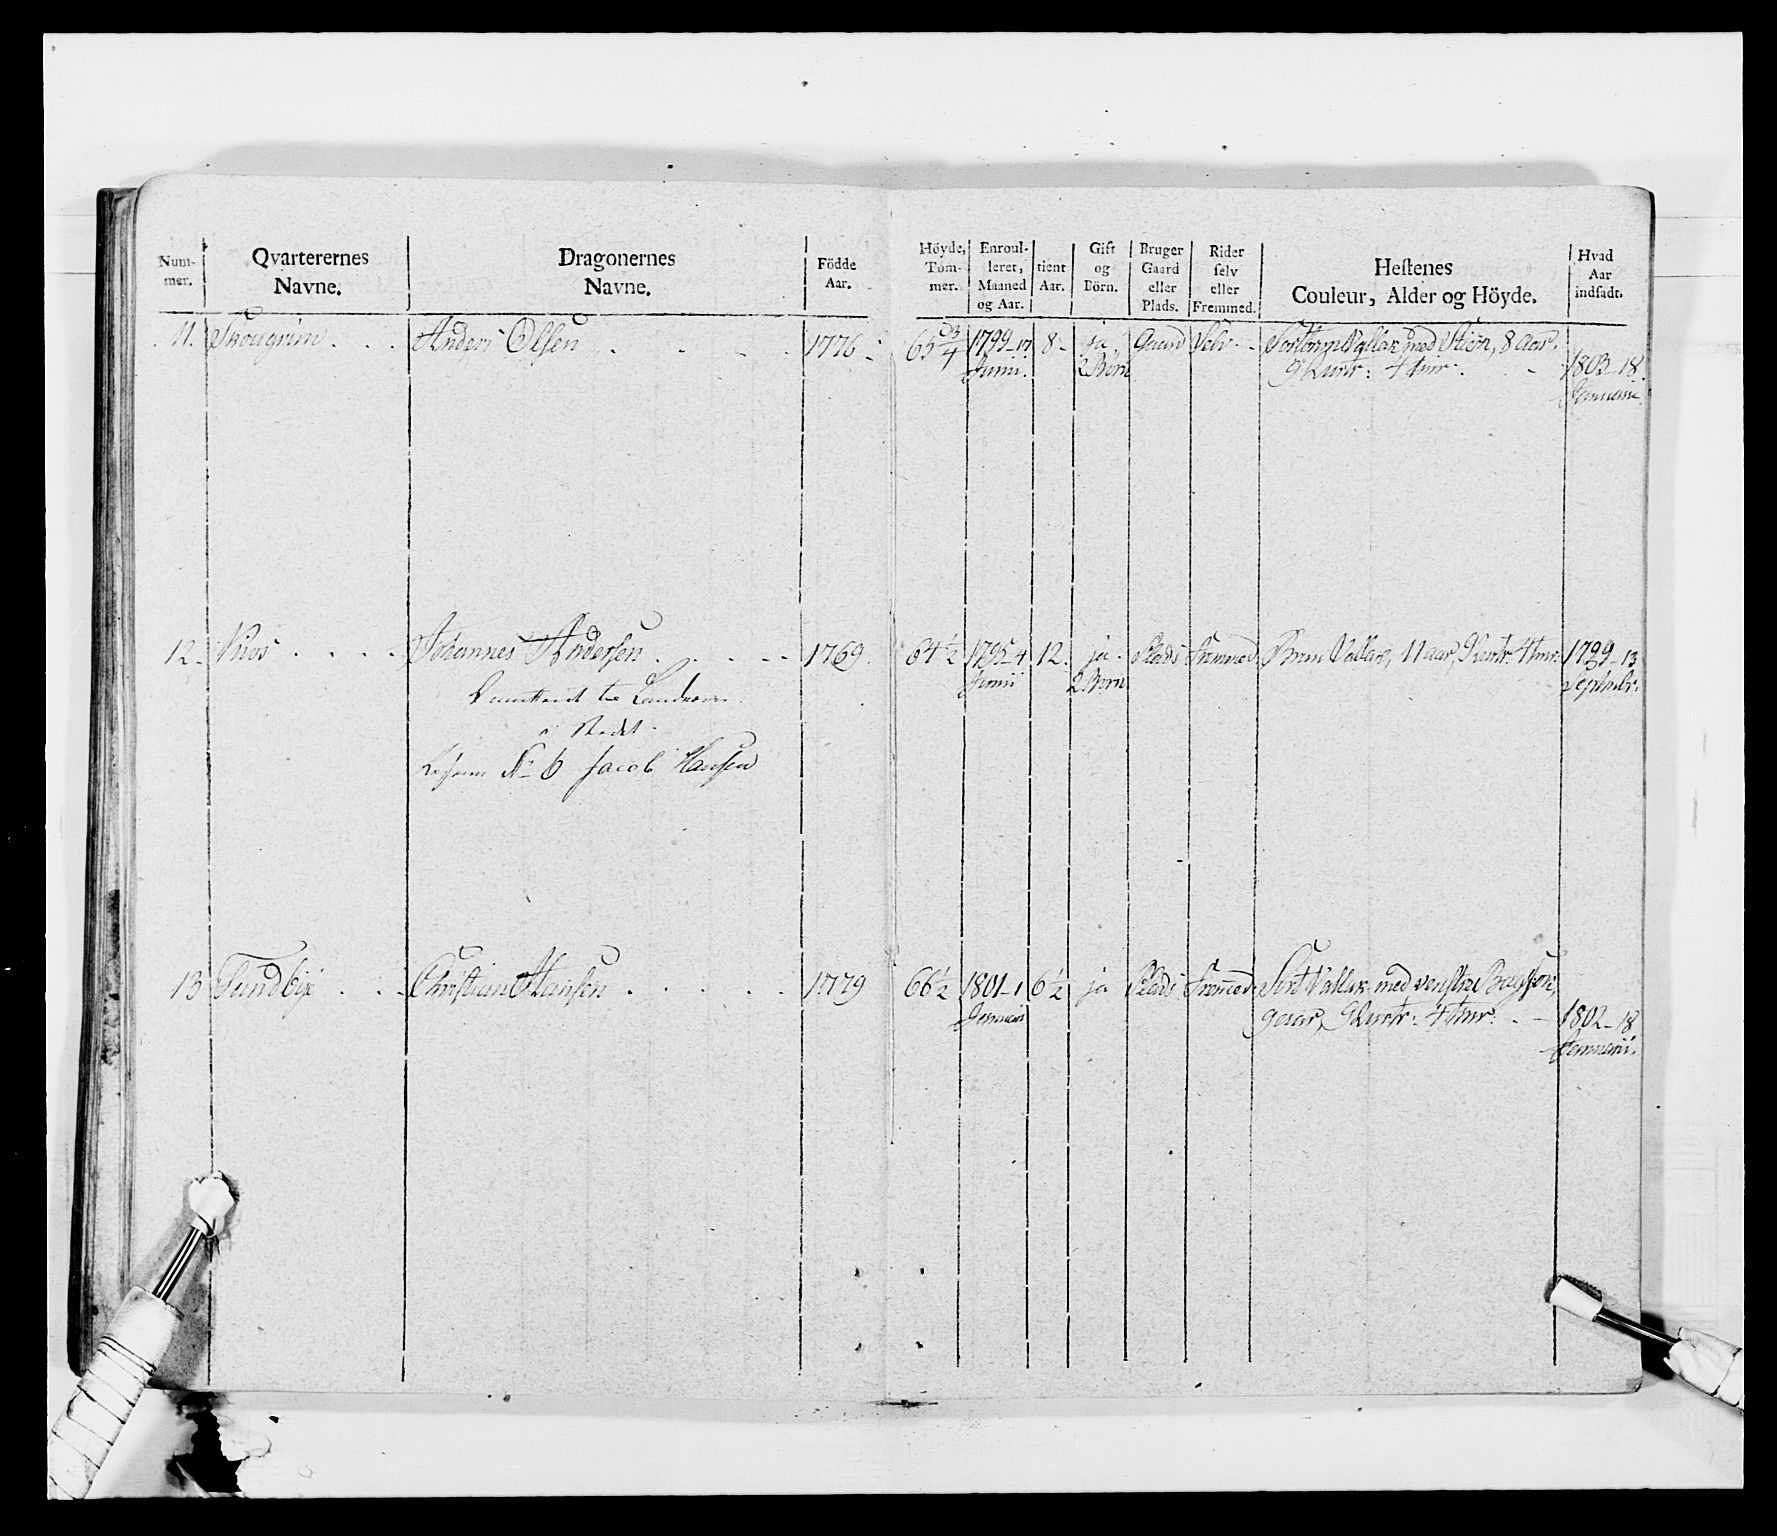 Num-
mer.
Qvarterernes
Navne.
Dragonernes
Navne.
Födde
Aar.
Höyde,
Tom-
mer.
Enroul-
leret,
Maaned
og Aar.
tient
Aar.
Gift
og
Börn.
Bruger
Gaard
eller
Plads.
Rider
selv
eller
Fremmed.
Hestenes
Couleur, Alder og Höyde.
Hvad
Aar
indsadt.
11. Skougrim Anders Olsen 1776 65 3/4 1799-17 8 ja Gaard Selv Vallak med Stiern, 8 Aar,
Junii. 2 Börn 9 Qvartr: 4 tmr. 1803-18
Januarii
12 Johannes Andersen 1769 64 1/2 1795-4 12 ja Plads Fremmed Brun Vallak, 11 aar, 9 Qvartr: 4 tmr. 1799-13
Junii 2 Börn Septembr:
til Landværn
No 6 Jacob Hansen
13 Sundbye Christian Hansen 1779 66 1/2 1801-1 6 1/2 ja Plads Fremmed Sort Vallak, med venstre
Januari 9 aar, 9 Qvartr: 4 tmr. 1802-18
Januarii.